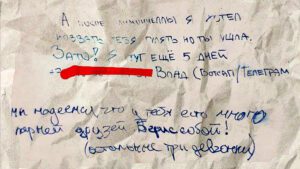 А после мохнинеллы я хотел
позвать тебя гулять но ты ушла.
Зато! Я тут ещё 5 дней
+7 Влад (Вотсап/Телеграм
мы надеемся, что у тебя есть много
парней друзей бери с собой!
(остальные три девчонки)